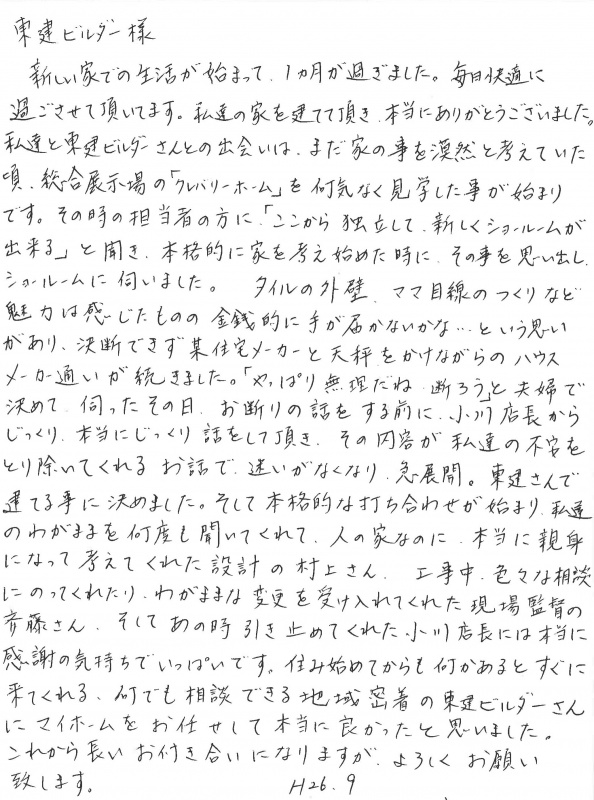 東建ビルダー様
新しい家での生活が始まって、1ヵ月が過ぎました。毎日快適に
過ごさせて頂いてます。私達の家を建てて頂き、本当にありがとうございました。
私達と東建ビルダーさんとの出会いは、まだ家の事を漠然と考えていた
頃、総合展示場の「クレバリーホーム」を何気なく見学した事が始まり
です。その時の担当者の方に、「ここから独立して、新しくショールームが
出来る」と聞き、本格的に家を考え始めた時に、その事を思い出し、
ショールームに伺いました。 タイルの外壁、ママ目線のつくりなど
魅力は感じたものの金銭的に手が届かないかな…という思い
があり、決断できず某住宅メーカーと天秤をかけながらのハウス
メーカー通いが続きました。「やっぱり無理だね、断ろう」と夫婦で
決めて、伺ったその日、お断りの話をする前に、小川店長から
じっくり、本当にじっくり話をして頂き、その内容が私達の不安を
とり除いてくれるお話で、迷いがなくなり、急展開。東建さんで
建てる事に決めました。そして本格的な打ち合わせが始まり、私達
のわがままを何度も聞いてくれて、人の家なのに、本当に親身
になって考えてくれた設計の村上さん、 工事中、色々な相談
にのってくれたり、わがままな変更を受け入れてくれた現場監督の
斉藤さん、そしてあの時引き止めてくれた小川店長には本当に
感謝の気持ちでいっぱいです。住み始めてからも何かあるとすぐに
来てくれる、何でも相談できる地域密着の東建ビルダーさん
にマイホームをお任せして本当に良かったと思いました。
これから長いお付き合いになりますが、よろしくお願い
致します。 H26.9